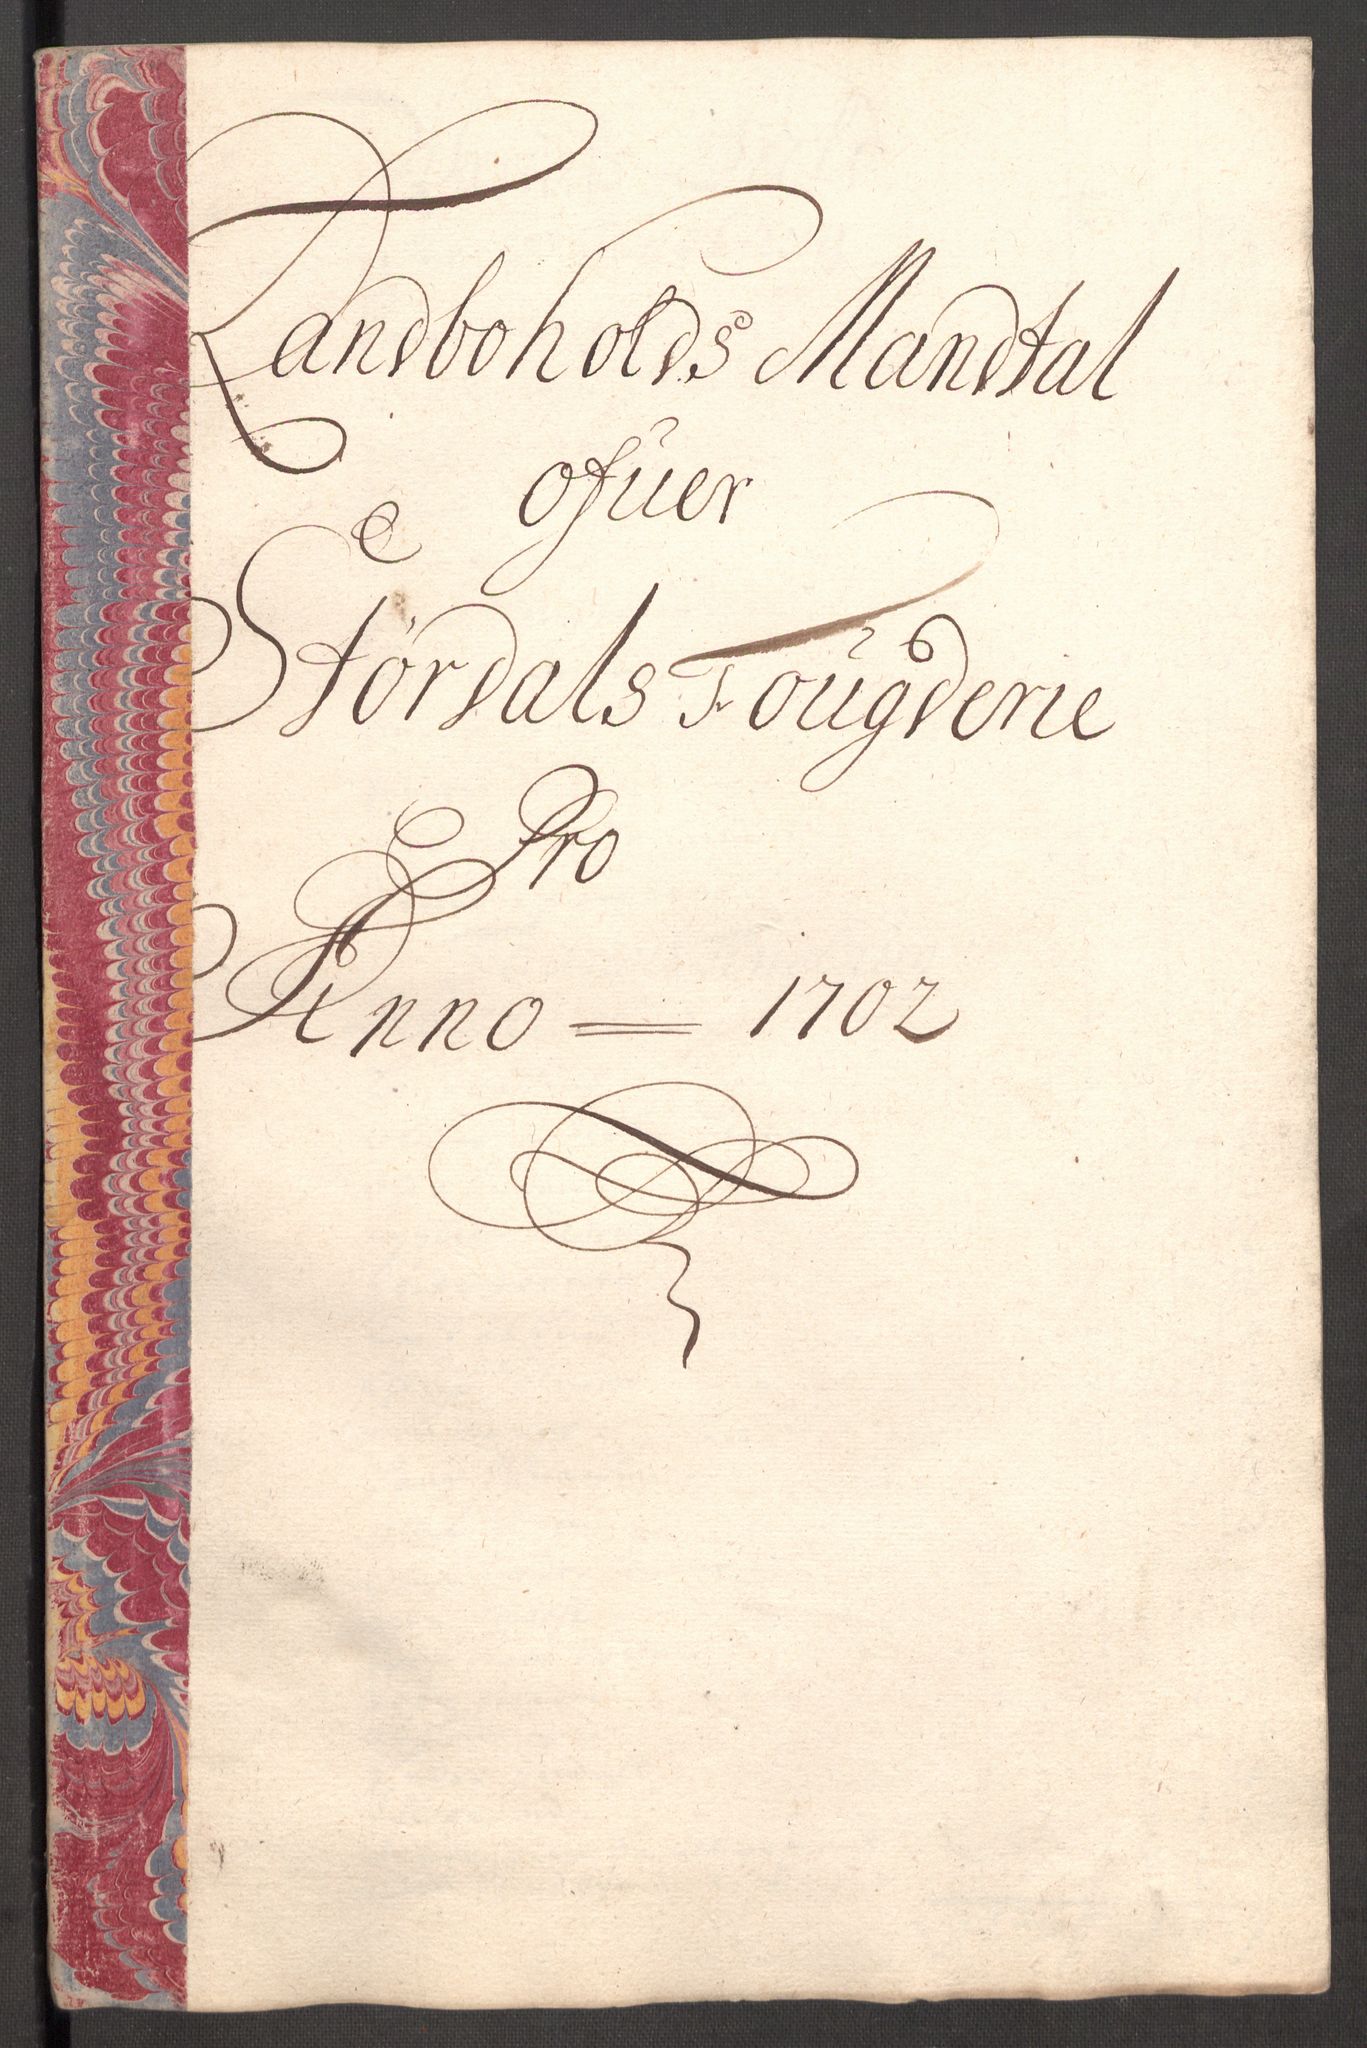 Landboholds Mandtal
ofuer
Størdals Fougderie
Pro
Anno = 1702